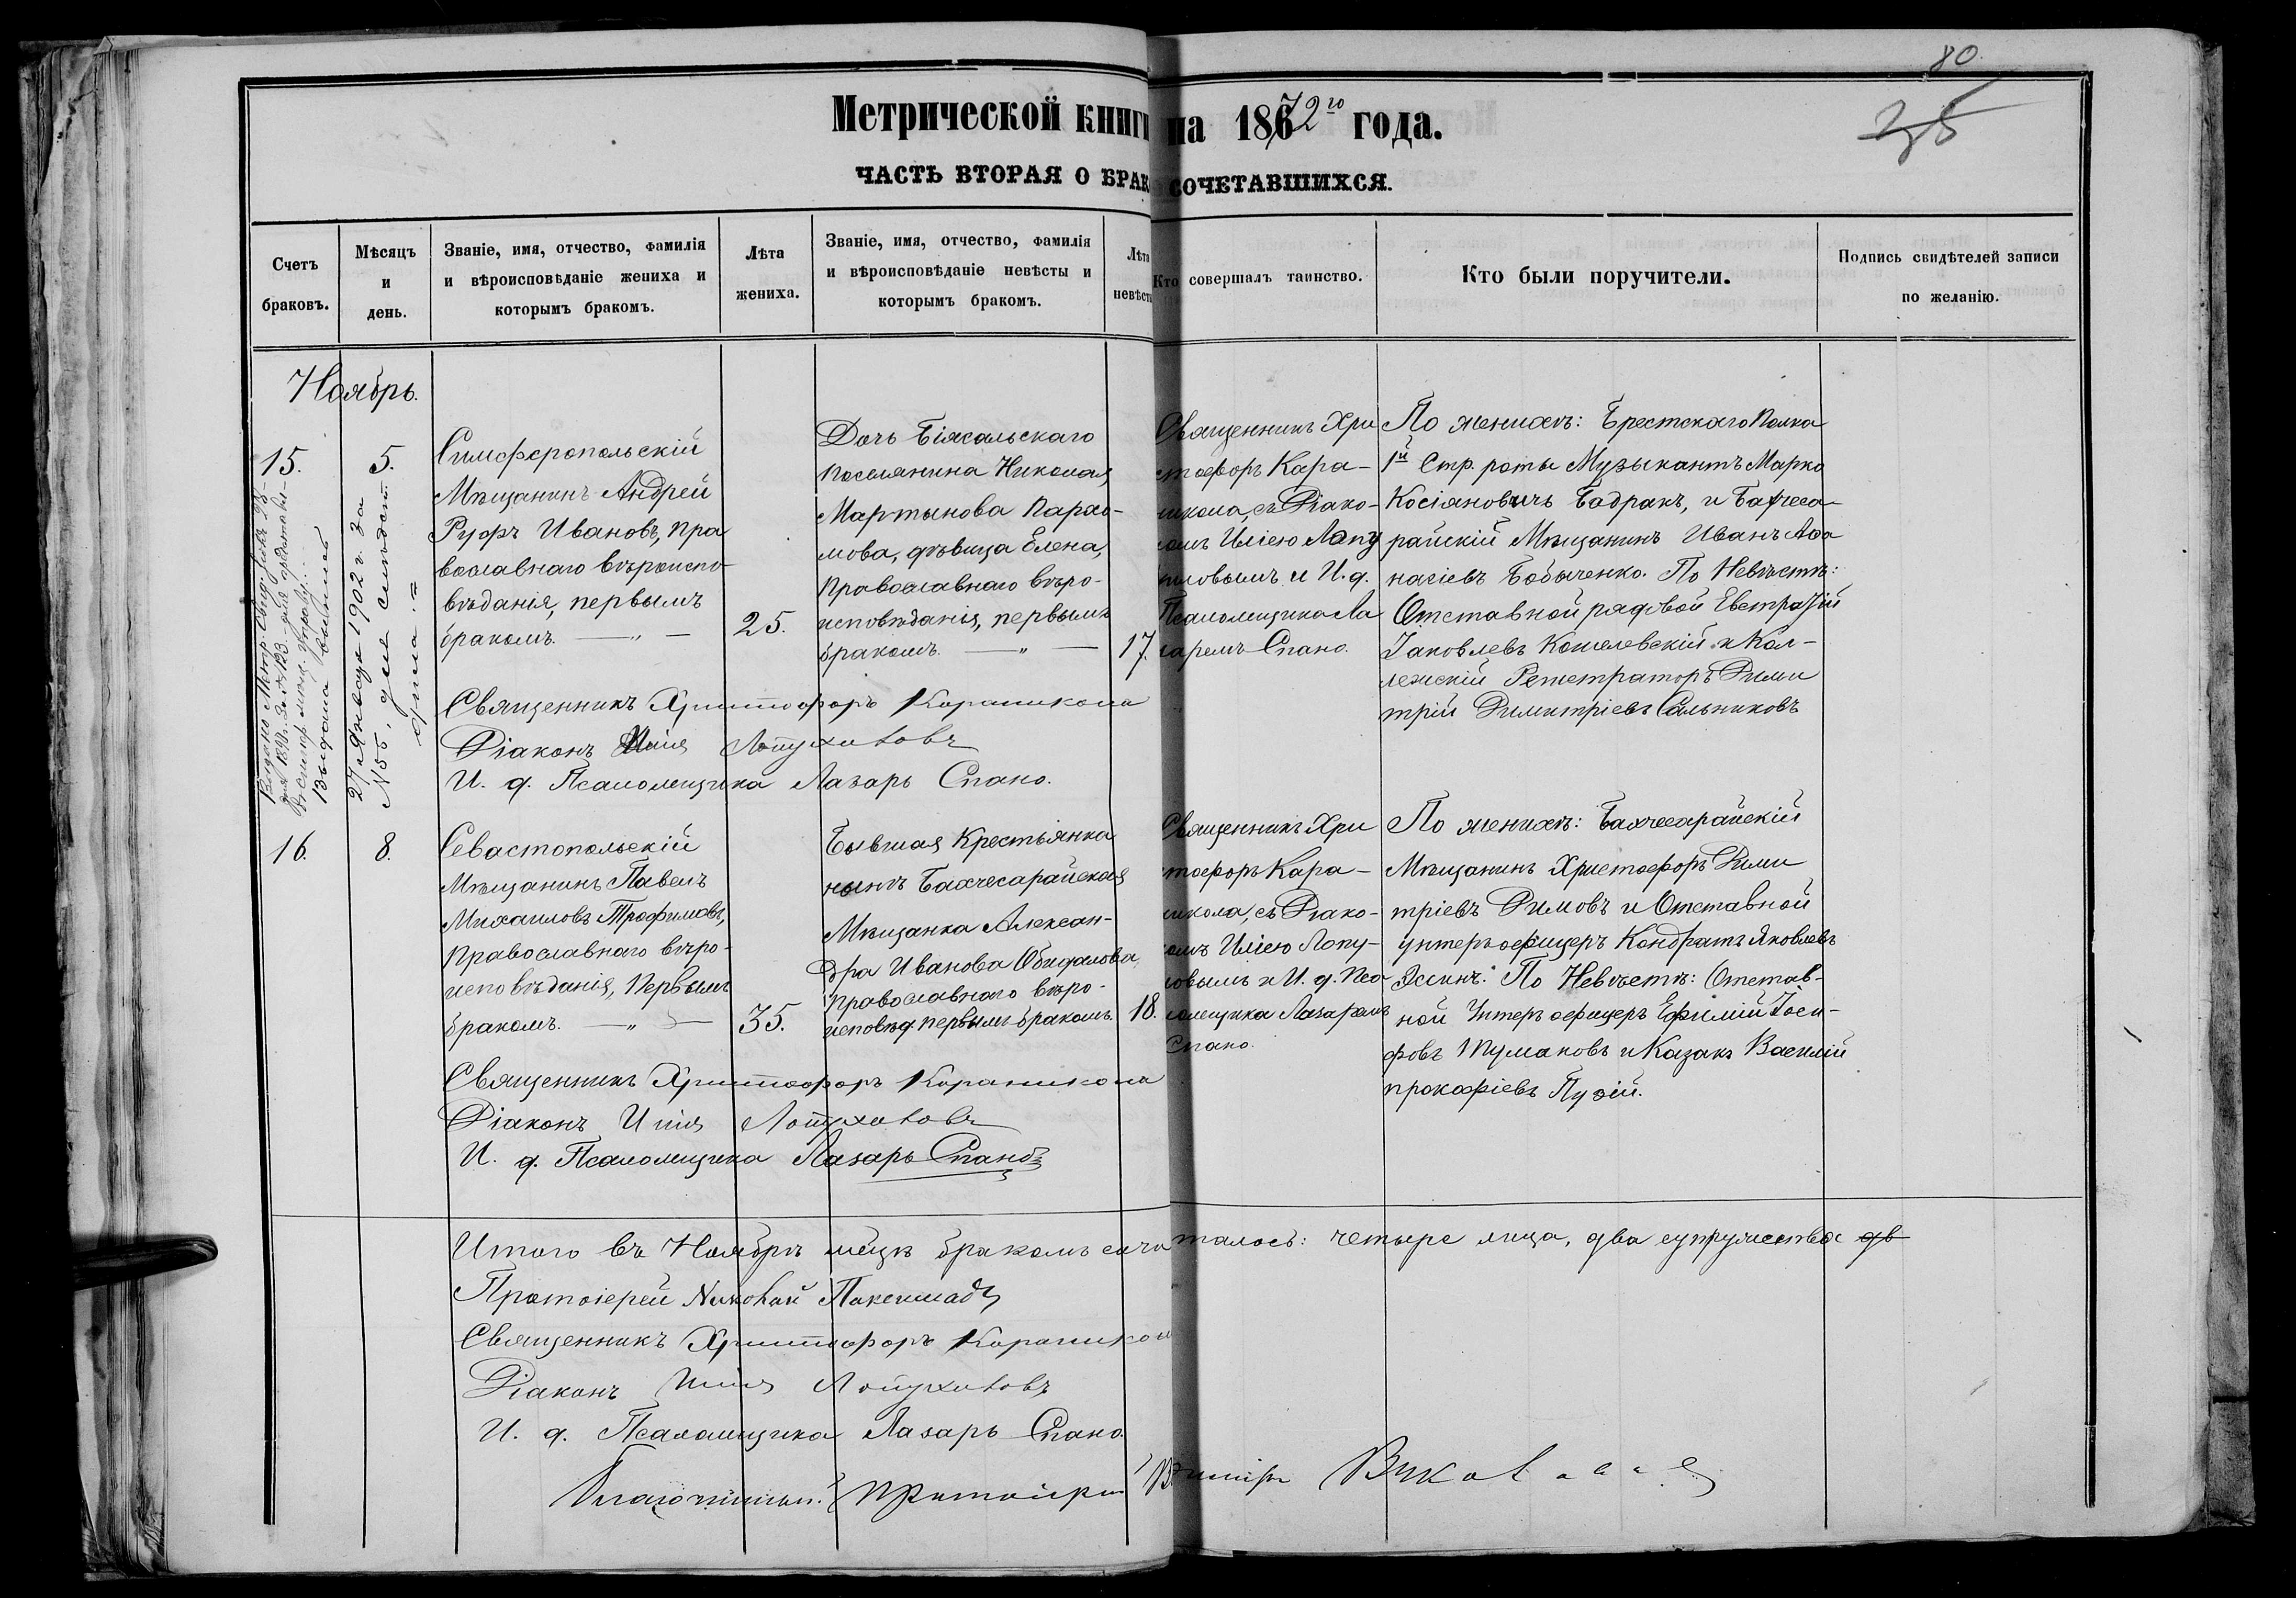 80
35
Метрической книги на 1872го года.
ЧАСТЬ ВТОРАЯ О БРАКОСОЧЕТАВШИХСЯ.
Счетъ
браковъ.
Мѣсяцъ
и
день.
Званіе, имя, отчество, фамилія
и вѣроисповѣданіе жениха и
которымъ бракомъ.
Лѣта
жениха.
Званіе, имя, отчество, фамилія
и вѣроисповѣданіе невѣсты и
которымъ бракомъ.
Лѣта
невѣст
Кто совершалъ таинство.
Кто были поручители.
Подпись свидѣтелей записи
по желанію.
Ноябрь.
15.
5.
Симферопольскій
Мѣщанинъ Андрей
Руфъ Ивановъ, пра
вославнаго вѣроиспо-
вѣданія, первымъ
бракомъ. — „ —
25.
Дочь Біясальскаго
поселянина Николая
Мартынова Парас-
мова, дѣвица Елена,
Православнаго вѣро-
исповѣданія, первымъ
бракомъ. — „ —
17.
Священникъ Хри
стофоръ Кара-
никола, съ Діако-
омъ Иліею Лопу
ховымъ и И. д.
Псаломщика Ла
заремъ Спано.
По женихѣ: Брестскаго Полка
1й Стр. роты Музыкантъ Марко
Косіяновичъ Бадракъ, и Бахчеса-
райскій Мѣщанинъ Иванъ Афа
насіевъ Бобыченко. По Невѣстѣ:
Отставной рядовой Евстрафій
Іаковлевъ Кошелевскій и Кол-
лежскій Регистраторъ Дими
трій Димитріевъ Сальниковъ
Выдана Метр.
Выдана выпись
27 Января 1902 г. за
№ 55, для слѣдст
Священникъ Христофоръ Караникола
Діаконъ Илія Лопухововъ
И. д. Псаломщика Лазарь Спано.
16.
8.
Севастопольскій
Мѣщанинъ Павелъ
Михаиловъ Трофимовъ,
Православнаго вѣро-
исповѣданія, Первымъ
бракомъ. — „ —
35.
Бывшая Крестьянка
нынѣ Бахчесарайская
Мѣщанка Алексан-
дра Иванова Обидалова
православнаго вѣро-
исповѣд. первымъ бракомъ.
18.
Священникъ Хри
стофоръ Кара-
никола, съ Діако-
омъ Иліею Лопу-
ховымъ и И. д. Пса-
ломщика Лазаремъ
Спано.
По женихѣ: Бахчесарайскій
Мѣщанинъ Христофоръ Дими
тріевъ Димовъ и Отставной
унтеръ офицеръ Кондратъ Яковлевъ
Эссинъ. По Невѣстѣ: Отстав-
ной Унтеръ офицеръ Ефимій Іоси-
фовъ Тумановъ и Казакъ Василій
прокофіевъ Пузій.
Священникъ Христофоръ Караникола
Діаконъ Илія Лопухововъ
И. д. Псаломщика Лазарь Спано
Итого въ Ноябрѣ мѣцѣ бракомъ сочеталось: четыре лица, два супружества дв
Протоіерей Николай
Священникъ Христофоръ Караникола
Діаконъ Илія Лопухововъ
И. д. Псаломщика Лазарь Спано
Благочинный Протоіерей